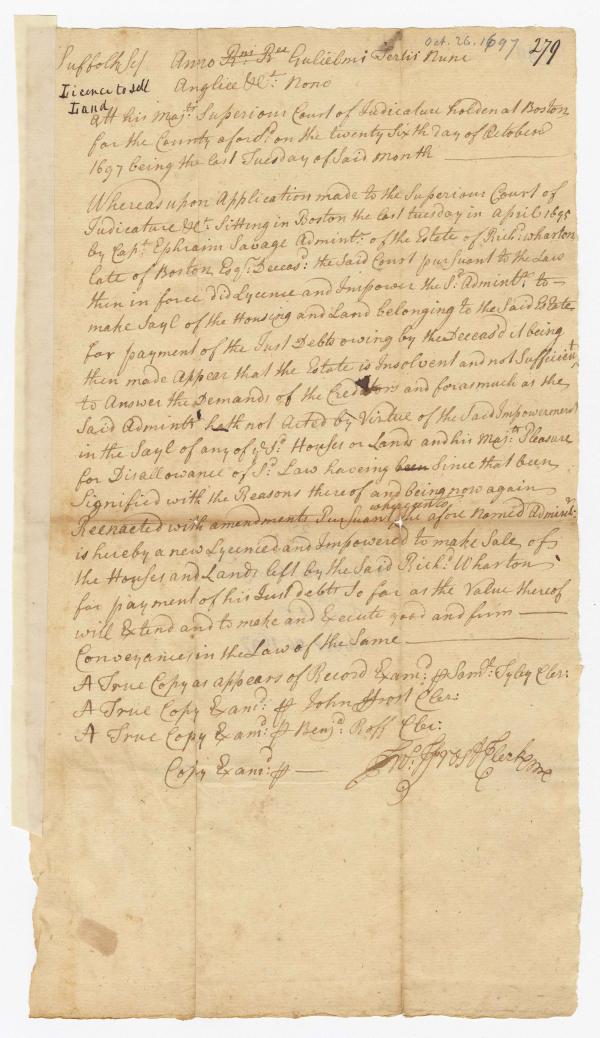 Oct. 26. 1697 279
Suffolk Ss/ Anno Rni Rce Gulielmi Tertii Nunc
Licence to sell Angliæ &ct. Nono
Land
Att his Majts. Superiour Court of Judicature holden at Boston
for the County afords. on the twenty Sixth day of October
1697 being the last Tuesday of Said Month
Whereas upon Application made to the Superiour Court of
Judicature &ct. Sitting in Boston the last tuesday in April 1695
by Capt. Ephraim Savage Admintr. of the Estate of Richd. Wharton
late of Boston Esqr. Deceasd. the Said Court pursuant to the Law
then in force did Lycence and Impower the Sd. Admintr. to
make Sayl of the Housing and Land belonging to the Said Estate
for payment of the Just Debts owing by the Deceas'd it being
then made Appear that the Estate is Insolvent and not Sufficient
to Answer the Demands of the Creditors and forasmuch as the
Said Admintr. hath not Acted by Virtue of the Said Impowerment
in the Sayl of any of ye Sd. Houses or Lands and his Majts. Pleasure
for Disallowance of Sd. Law haveing been Since that been
Signified with the Reasons thereof and being now again
Reenacted with amendments Pursuant whereunto the afore Named Adminr.
is hereby a new Lycenced and Impowered to make Sale of
the Houses and Lands left by the Said Richd. Wharton
for payment of his Just debts So far as the Value thereof
will Extend and to make and Execute good and firm
Conveyances in the Law of the Same
A True Copy as appears of Record Examd. ⅌ Samll. Tyley Cler:
A True Copy Examd. ⅌ John ffrost Cler:
A True Copy Examd. ⅌ Benjd. Roff Cler:
Copy Examd. ⅌ Jno. ffrost Clerk